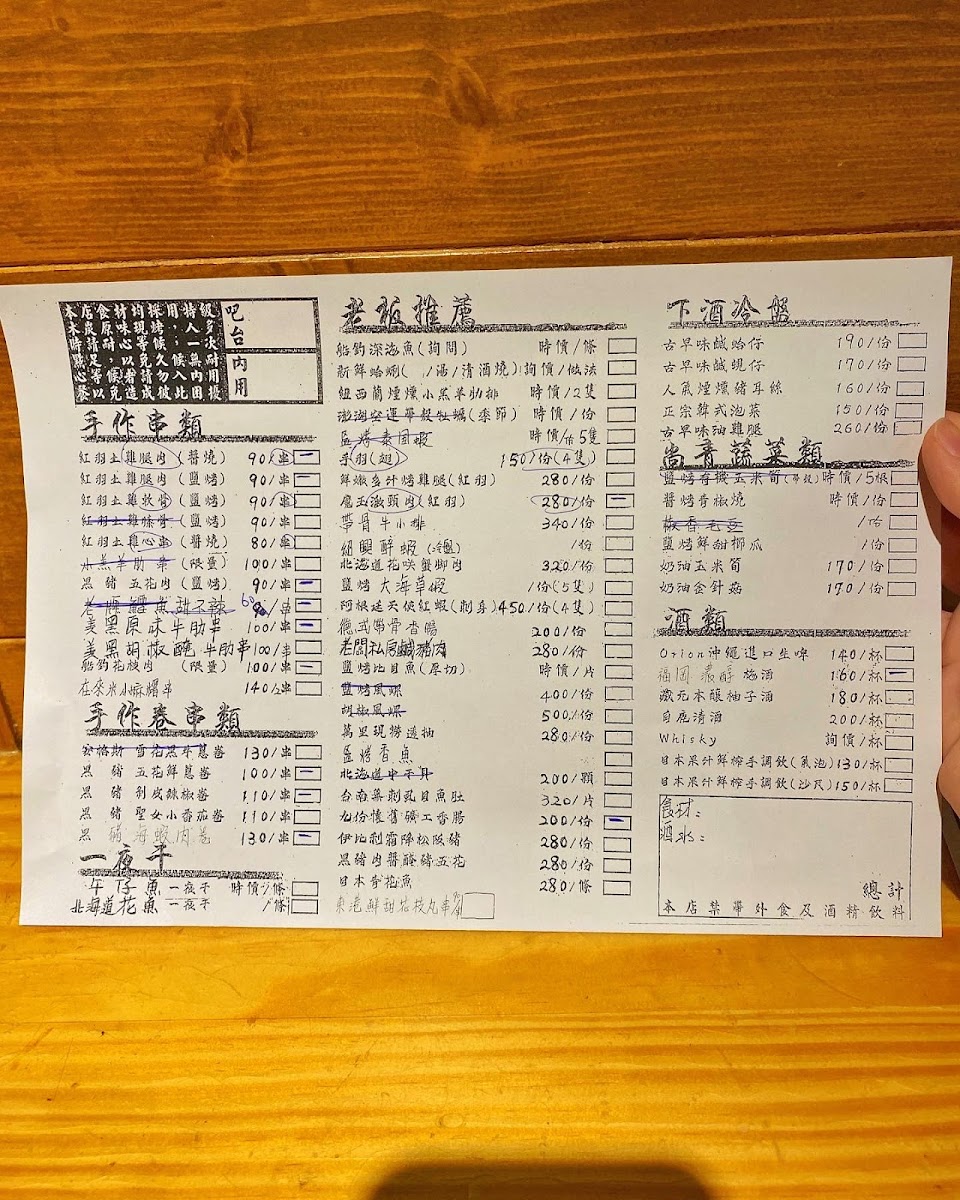 吧台
內用
手作串類
紅羽土雞腿肉(醬燒) 90/串
紅羽土雞腿肉(鹽烤) 90/串
紅羽土雞軟骨(鹽烤) 90/串
紅羽土雞條骨(鹽烤) 90/串
紅羽土雞心串(醬燒) 80/串
小羔羊肋串(限量) 100/串
黑豬五花肉(鹽烤) 90/串
甜不辣 60 /串
美黑原味牛肋串 100/串
美黑胡椒醃牛肋串 100/串
船釣花枝肉(限量) 100/串
在來米小麻糬串 140/串
手作卷串類
安格斯 雪花黑牛蔥卷 130/串
黑豬 五花鮮蔥卷 100/串
黑豬 剝皮辣椒卷 110/串
黑豬 聖女小番茄卷 110/串
黑豬 海蝦肉卷 130/串
一夜干
午仔魚一夜干 時價/條
北海道花魚一夜干 /條
老板推薦
船釣深海魚(詢問) 時價/條
新鮮蛤蜊( /湯/清酒燒) 詢價/做法
紐西蘭煙燻小羔羊肋排 時價/2隻
澎湖空運帶殼牡蠣(季節) 時價/份
區烤泰國蝦 時價/份5隻
手羽(翅) 150/份(4隻)
鮮嫩多汁烤雞腿(紅羽) 280/份
魔王激頸肉(紅羽) 280/份
帶骨牛小排 340/份
紹興醉蝦(冷盤) /份
北海道花咲蟹腳肉 320/份
鹽烤大海草蝦 /份(5隻)
阿根廷天使紅蝦(刺身) 450/份(4隻)
德式帶骨香腸 200/份
老闆私房鹹豬肉 280/份
鹽烤比目魚(厚切) 時價/片
鹽烤風螺 400/份
胡椒風螺 500/份
萬里現撈透抽 280/份
區烤香魚
北海道中干貝 200/顆
台南無刺虱目魚肚 320/片
九份懷舊礦工香腸 200/份
伊比利霜降松阪豬 280/份
黑豬肉醬醃豬五花 280/份
日本青花魚 280/條
東港鮮甜花枝丸串
下酒冷盤
古早味鹹蛤仔 190/份
古早味鹹蜆仔 170/份
人氣煙燻豬耳絲 160/份
正宗韓式泡菜 150/份
古早味油雞腿 260/份
尚青蔬菜類
鹽烤有機玉米筍(帶殼) 時價/5根
醬烤青椒燒 時價/份
椒香毛豆 /份
鹽烤鮮甜櫛瓜 /份
奶油玉米筍 170/份
奶油金針菇 170/份
酒類
Orion沖繩進口生啤 140/杯
福岡濃醇梅酒 160/杯
藏元本釀柚子酒 180/杯
白鹿清酒 200/杯
Whisky 詢價/杯
日本果汁鮮榨手調飲(氣泡) 130/杯
日本果汁鮮榨手調飲(沙瓦) 150/杯
食材：
酒水：
總計
本店禁帶外食及酒精飲料